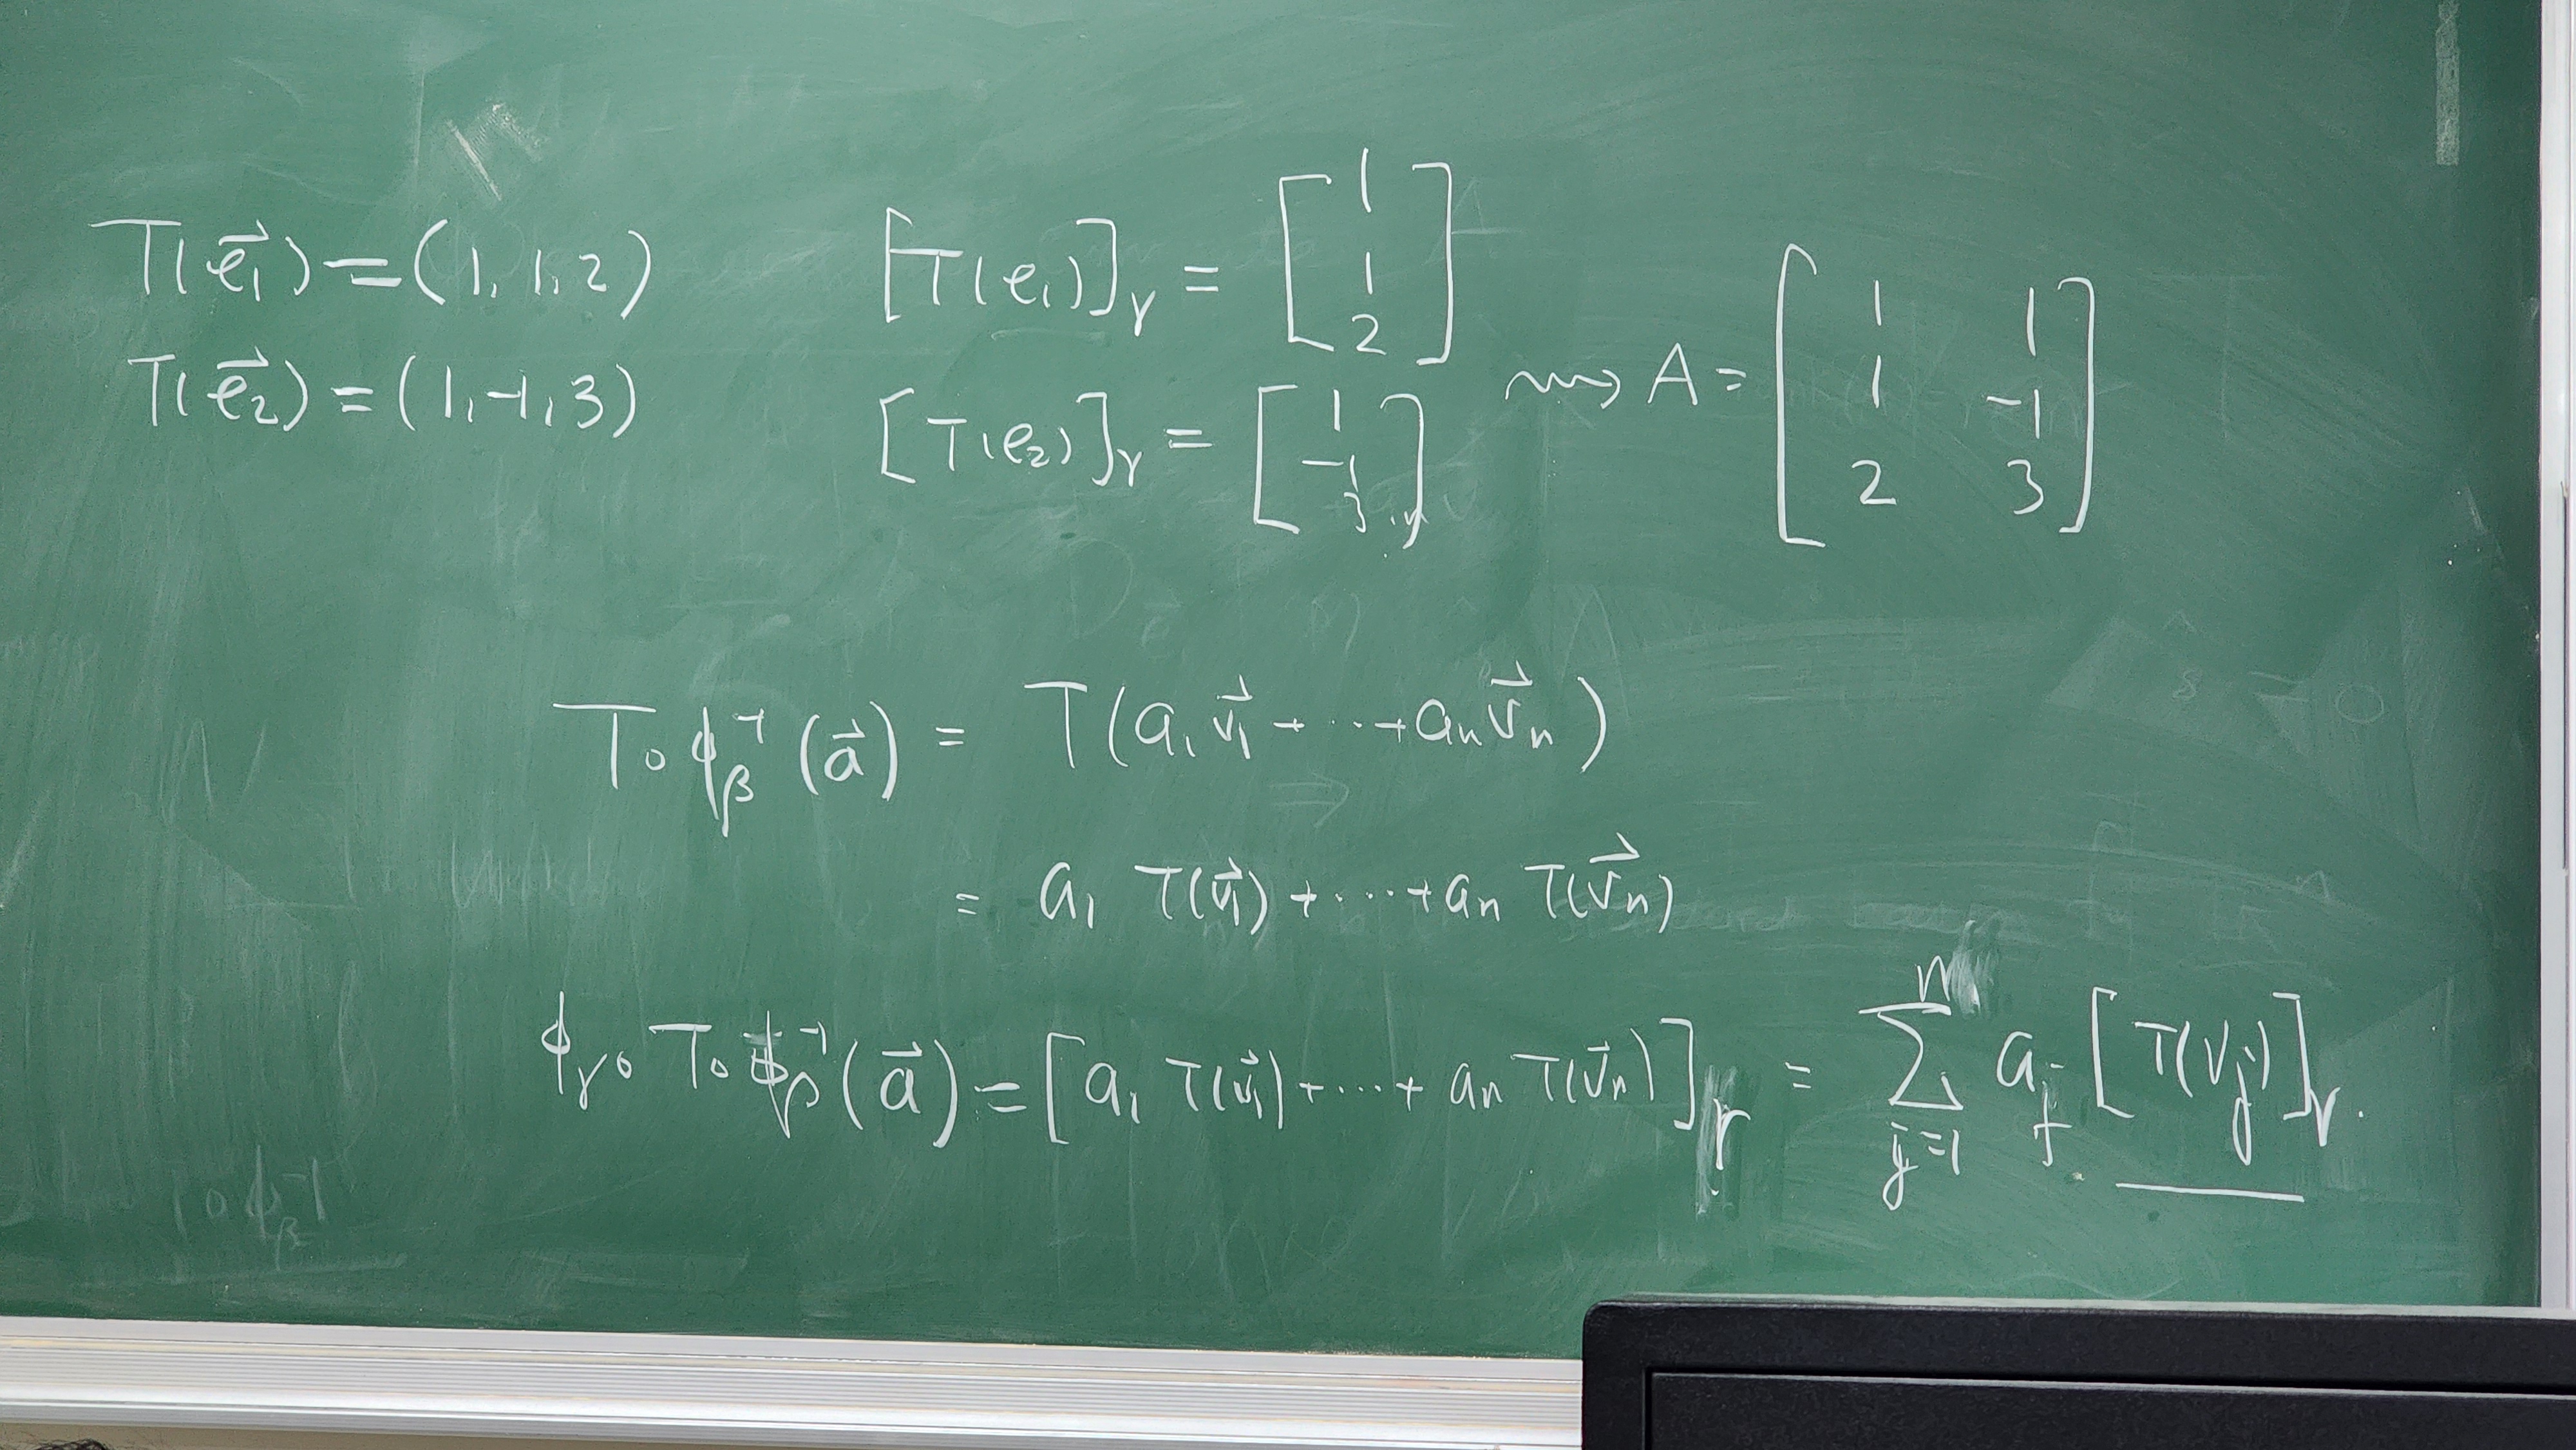 T(e⃗₁) = (1, 1, 2)
T(e⃗₂) = (1, -1, 3)
[T(e₁)]ᵧ = [1 1 2]
[T(e₂)]ᵧ = [1 -1 3]
⇝ A = [1 1
1 -1
2 3]
T∘ϕᵦ⁻¹(a⃗) = T(a₁v⃗₁ + ⋯ + aₙv⃗ₙ)
= a₁ T(v⃗₁) + ⋯ + aₙ T(v⃗ₙ)
ϕᵧ∘T∘ϕᵦ⁻¹(a⃗) = [a₁ T(v⃗₁) + ⋯ + aₙ T(v⃗ₙ)]ᵧ = ∑ⱼ₌₁ⁿ aⱼ [T(vⱼ)]ᵧ.